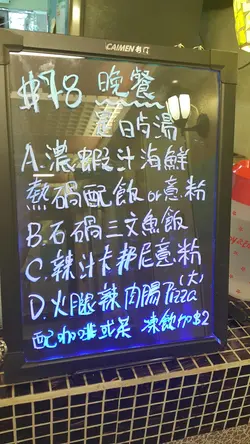 CAIMEN 彩门
$78 晚餐
是日例湯
A.濃蝦汁海鮮
熱鍋配飯or意粉
B.石鍋三文魚飯
C.辣汁卡邦尼意粉
D.火腿辣肉腸Pizza(大)
配咖啡或茶 凍飲加$2